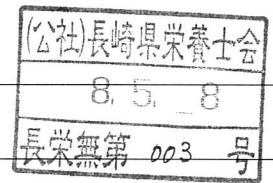 (公社)長崎県栄養士会
8. 5. 8
長栄無第 003 号